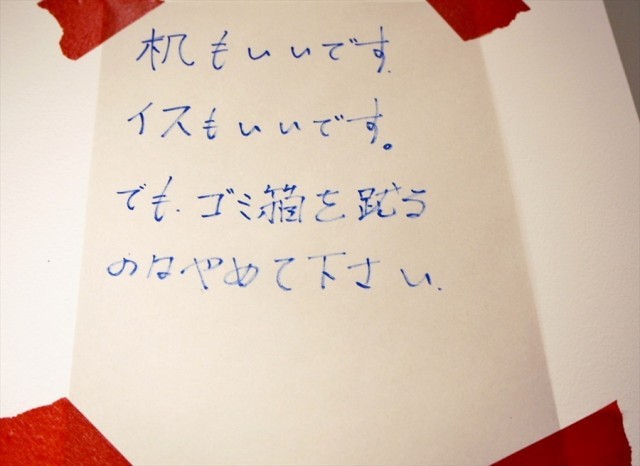 机もいいです.
イスもいいです。
でも、ゴミ箱を蹴る
のはやめて下さい.